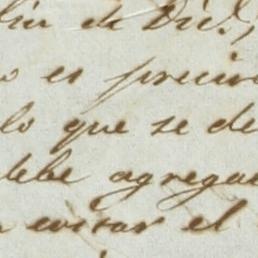 de Dic.e
o es preciso
lo que se de
debe agregar
evitar el